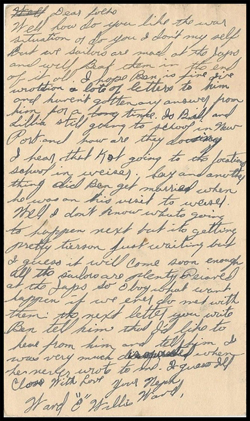 Dear folks
Well how do you like the war
situation or do you I don't my self
But we sailors are mad at the Japs
and will Beat them in the end
of it all. I hope Ben is fine I've
wrotten a lot of letters to him
and havent gotten any answer from
him for a long time. Is Bill and
Lillie still going to school in New
Port and how are they
I hear that Not going to the
school in weiser, and another
thing did Ben get married when
he was on his visit to weiser.
Well I don't know whats going
to happen next but its getting
pretty just writing but
I guess it will come soon enough
All the sailors are plenty Peaved
at the Japs so I boy what want
happen if we ever do met with
them. the next letter you write
Ben tell him that I'd like to
hear from him and tell him I
was very much when
he never wrote to me. I guess Ill
Close With Love Your Neph
Ward "E" Willie Ward,